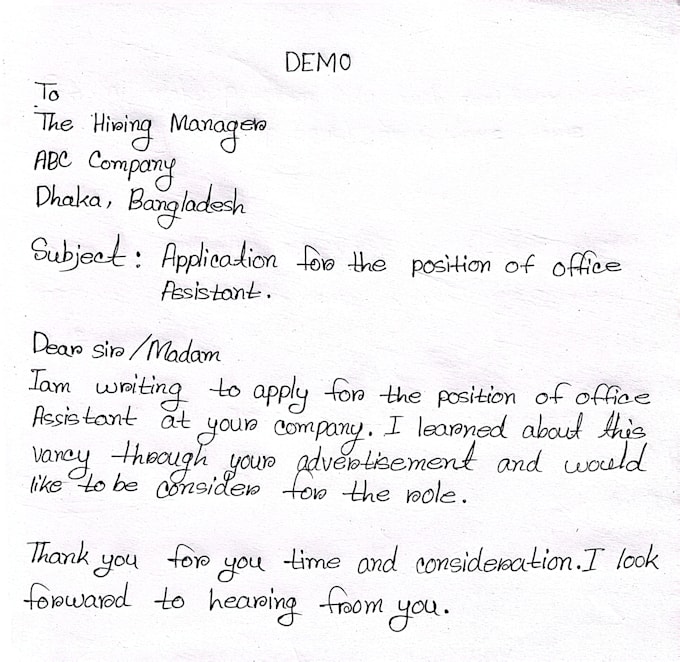 DEMO
To
The Hiring Manager
ABC Company
Dhaka, Bangladesh
Subject: Application for the position of office
Assistant.
Dear sir/Madam
Iam writing to apply for the position of office
Assistant at your company. I learned about this
vancy through your advertisement and would
like to be consider for the role.
Thank you for you time and consideration. I look
forward to hearing from you.